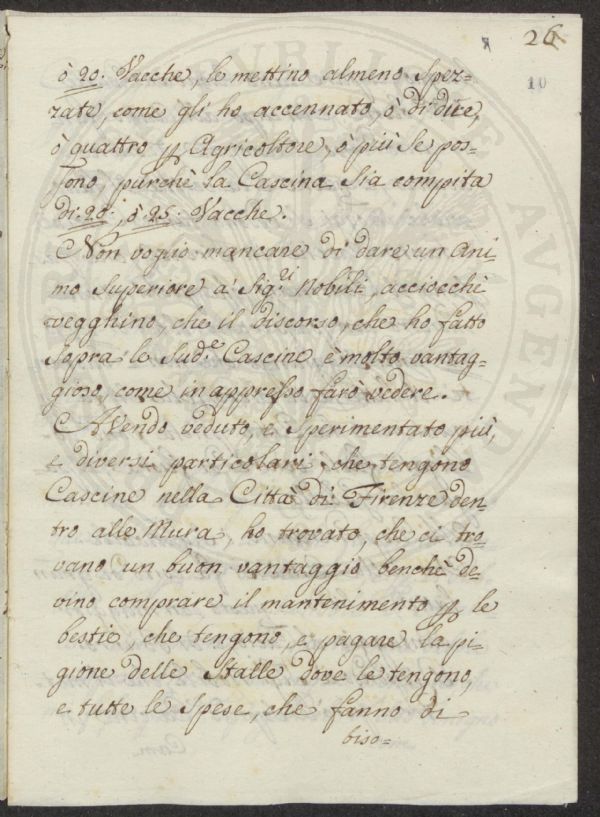 26
10
ò 20. Vacche, le mettino almeno spez=
zate, come gli ho accennato, ò di dire,
ò quattro p Agricoltore, ò più se pos=
sono, purchè la Cascina sia compita
di 20., ò 25. Vacche.
Non voglio mancare di dare un ani=
mo superiore a' Sig.ri Nobili, acciocchè
vegghino, che il discorso, che ho fatto
sopra le Sud.e Cascine è molto vantag=
gioso, come in appresso farò vedere.
Avendo veduto, e sperimentato più,
e diversi particolari, che tengono
Cascine nella Città di Firenze den=
tro alle Mura, ho trovato, che ci tro=
vano un buon vantaggio benchè de=
vino comprare il mantenimento p le
bestie, che tengono, e pagare la pi=
gione delle Stalle dove le tengono,
e tutte le spese, che fanno di
biso=